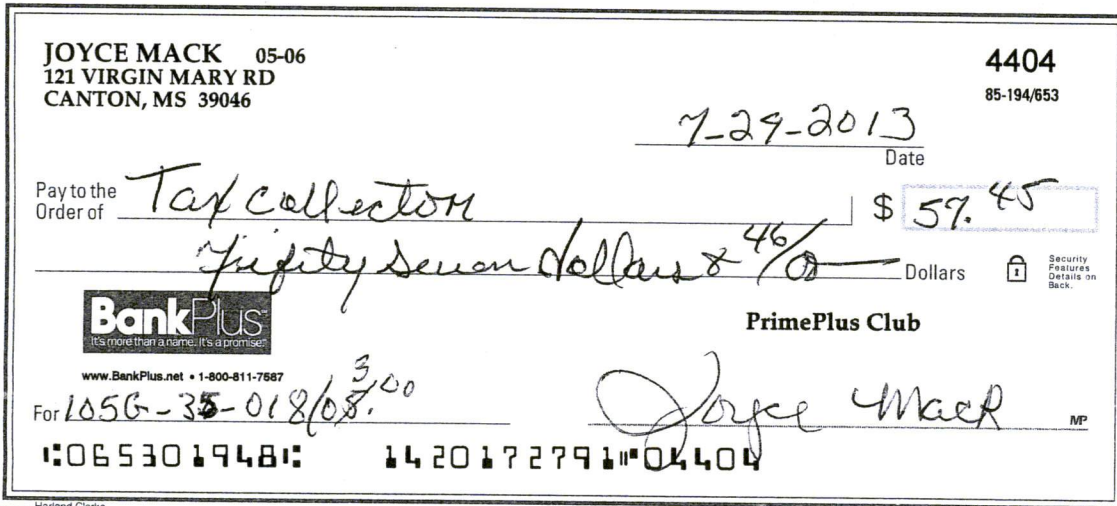 JOYCE MACK 05-06
121 VIRGIN MARY RD
CANTON, MS 39046
4404
85-194/653
7-29-2013
Date
Pay to the Order of Tax collector
$ 57.45
Fifity Seven dollars & 46/00 Dollars
Security Features Details on Back.
BankPlus
It's more than a name. It's a promise.
PrimePlus Club
www.BankPlus.net • 1-800-811-7587
For 105G-35-018/03.00
Joyce Mack
MP
⑆065301948⑆ 1420172791⑈04404
Harland Clarke